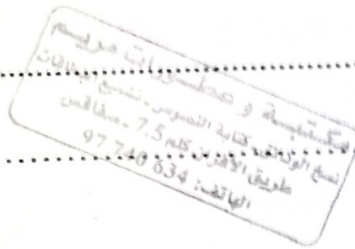 مكتبة و عطورات مريم
نسخ الوثائق كتابة النصوص
طريق الأفران كلم 7.5 - صفاقس
الهاتف: 97 740 634